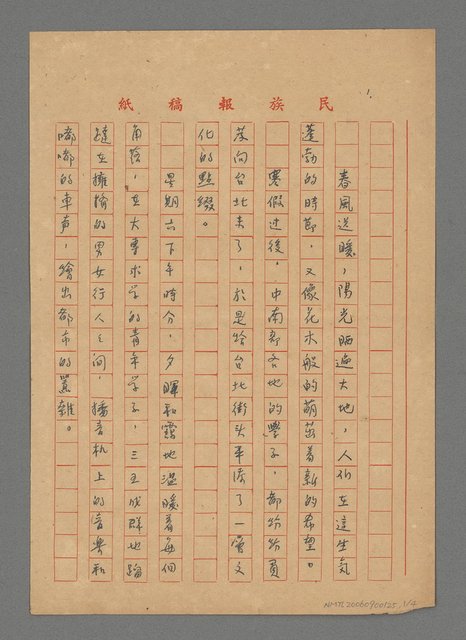 民族報稿紙
1.
春風送暖，陽光晒遍大地，人們在這生氣
蓬勃的時節，又像花木般的萌茁着新的希望。
寒假过後，中南部各地的學子，都紛紛負
笈向台北來了，於是給台北街头平添了一層文
化的點綴。
星期六下午時分，夕暉和靄地溫暖着每個
角落，在大專求学的青年学子，三五成群地踏
躂在擁擠的男女行人之間，播音机上的音樂和
嘟嘟的車声，繪出都市的囂雜。
NMTL20060900125 1/4